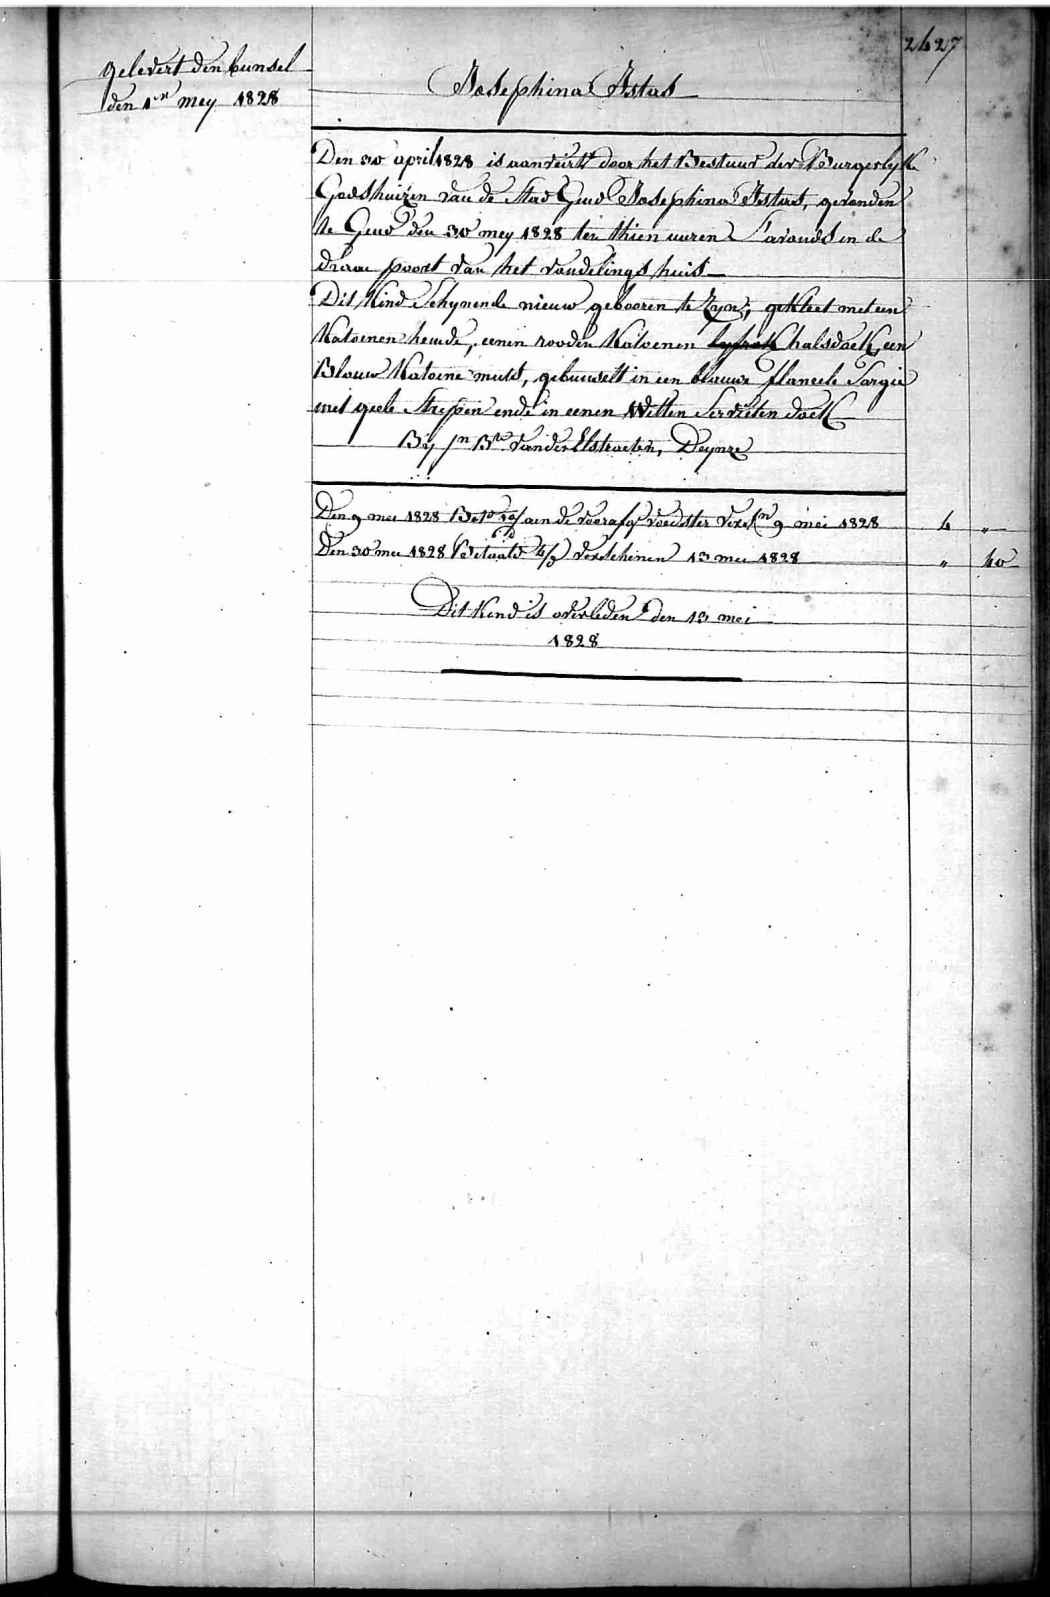 2427
gelevert den bunsel
den 1en mey 1828
Josephina Istas
Den 30 april 1828 is aanveirt door het Bestuur der Burgerlyke
Godshuizen van de Stad Gend Josephina Istas, gevonden
te Gend den 30 mey 1828 ten thien uuren S'avonds in de
draai poort van het vondelings huis
Dit Kind Schynende nieuw gebooren te Zyn, gekleet met een
Katoenen hemde, eenen rooden Katoenen halsdoek, een
Blauw Katoene muts, gebunselt in een blauwe flaneele Sargie
met geele Strepen ende in eenen Witten Servieten doek
By Jn Bte Vander Elstraeten, Deynze
Den 9 mei 1828 aen de voorafg voedster 9 mei 1828 4 "
Den 30 mei 1828 Betaald 4/9 verschenen 13 mei 1828 " 40
Dit Kind is overleden den 13 mei
1828